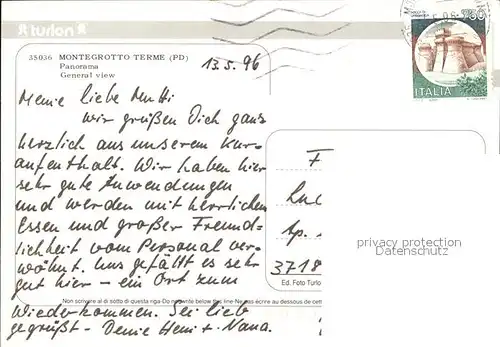 turlon
35036 MONTEGROTTO TERME (PD)
Panorama
General view
13.5.96
750
ITALIA
Meine liebe Mutti
wir grüßen Dich ganz
herzlich aus unserem Kur-
aufenthalt. Wir haben hier
sehr gute Anwendungen
und werden mit herrlichem
Essen und großer Freund-
lichkeit vom Personal ver-
wöhnt. Uns gefällt es sehr
gut hier – ein Ort zum
Wiederkommen. Sei lieb
gegrüßt - Deine Heni + Nana.
F
Lu
Ap.
3718
privacy protection
Datenschutz
Ed. Foto Turlo
Non scrivere al di sotto di questa riga-Do not write below this line-Ne pas écrire au dessous de cette